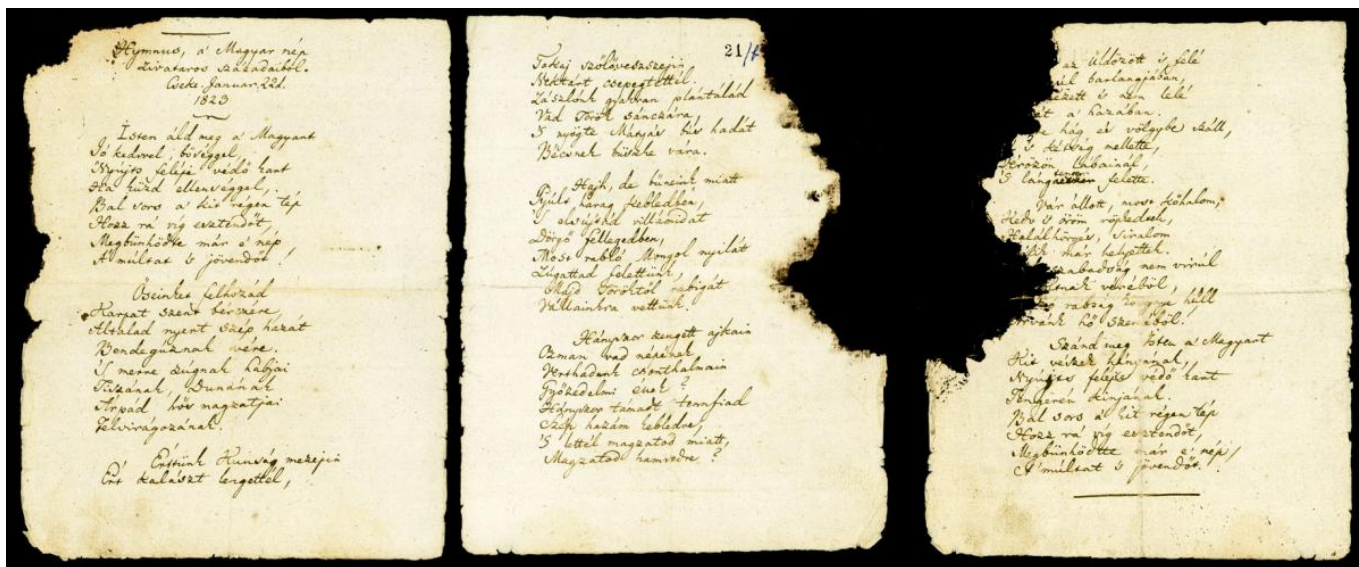 Hymnus, a' Magyar nép
zivataros századaiból.
Cseke. Januar. 22d.
1823
Isten áld meg a' Magyart
Jó kedvvel, bőséggel,
Nyújts feléje védő kart
Ha küzd ellenséggel,
Bal sors a' kit régen tép
Hozz rá víg esztendőt,
Megbünhödte már e' nép
A' múltat 's jövendőt!
Őseinket felhozád
Kárpát szent bérczére,
Általad nyert szép hazát
Bendegúznak vére.
'S merre zúgnak habjai
Tiszának, Dunának
Árpád hős magzatjai
Felvirágozának.
Értünk Kunság mezejin
Ért kalászt lengettél,
21/
Tokaj szőlővesszejin
Nektárt csepegtettél.
Zászlónk gyakran plántálád
Vad Török sánczára,
'S nyögte Mátyás bús hadát
Bécsnek büszke vára.
Hajh, de bűneink miatt
Gyúlt harag kebledben,
'S elsujtád villámidat
Dörgő fellegedben,
Most rabló Mongol nyilát
Zúgattad felettünk,
Majd Töröktől rabigát
Vállainkra vettünk.
Hányszor zengett ajkain
Ozman vad népének
Vert hadunk csonthalmain
Győzedelmi ének?
Hányszor támadt tennfiad
Szép hazám kebledre,
'S lettél magzatod miatt,
Magzatod hamvedre?
az üldözött 's felé
barlangjában,
's nem lelé
a' hazában.
hág és völgybe száll,
's kétség mellette,
Vérözön lábainál,
'S lángtenger felette.
Vár állott, most kőhalom,
Kedv 's öröm röpkedtek,
Halálhörgés, siralom
már helyettek.
szabadság nem virúl
véréből,
rabság könnye hull
hő szeméből.
Szánd meg Isten a' Magyart
Kit vészek hányának,
Nyújts feléje védő kart
Tengerén kínjának.
Bal sors a' kit régen tép
Hozz rá víg esztendőt,
Megbünhödte már e' nép
A' múltat 's jövendőt.